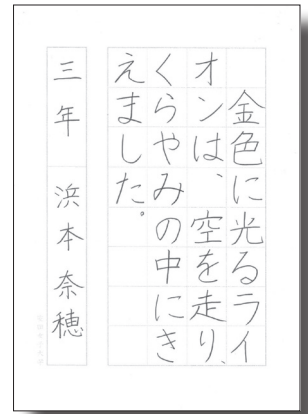 金色に光るライ
オンは、空を走り、
くらやみの中にき
えました。
三年 浜本奈穂